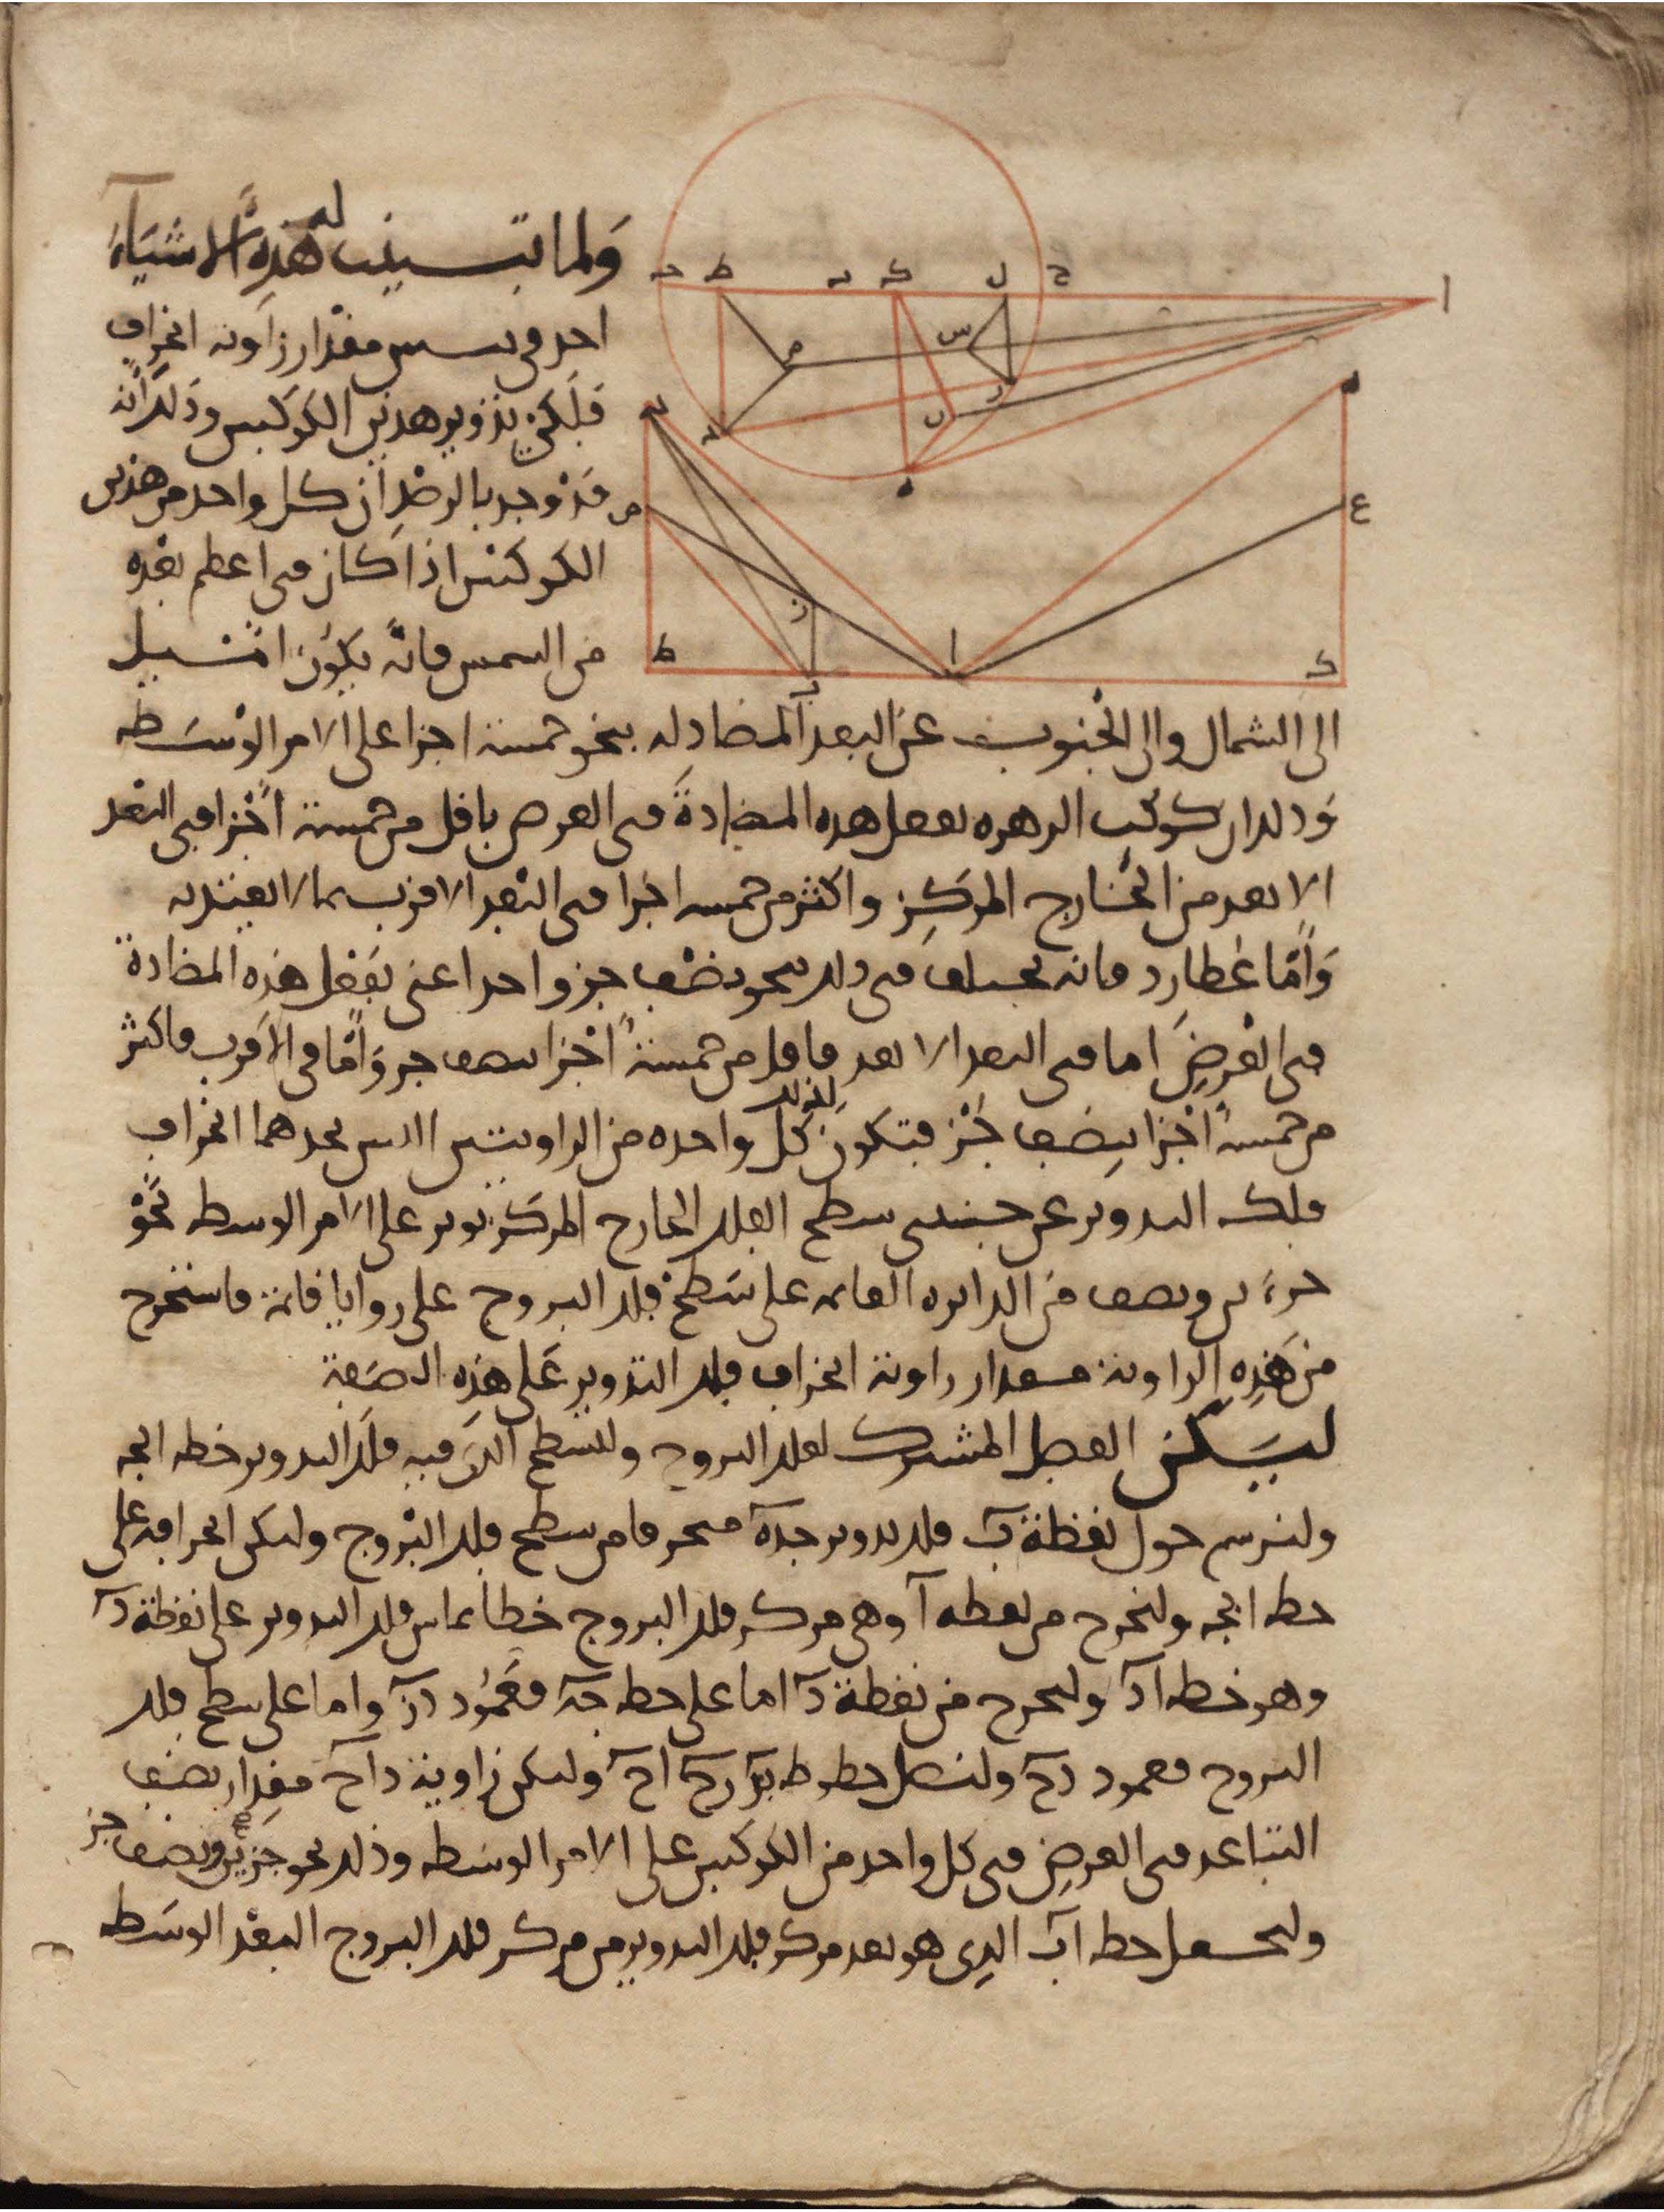 ولما تبينت له هذه الاشياء
اخذ في تبيين مقدار زاوية انحراف
فلكي تدوير هذين الكوكبين وذلك انه
قد وجد بالرصد ان كل واحد من هذين
الكوكبين اذا كان في اعظم بعده
من الشمس فانه يكون اميل
الى الشمال والى الجنوب عن البعد المضاد له بنحو خمسة اجزا على الامر الاوسط
وذلك ان كوكب الزهره يفعل هذه المضادة في العرض باقل من خمسة اجزا في البعد
الابعد من الخارج المركز واكثر من خمسه اجزا في البعد الاقرب بما لا يعتد به
واما عطارد فانه يختلف في ذلك بنحو نصف جزو احد اعني يفعل هذه المضادة
في العرض اما في البعد الابعد فاقل من خمسة اجزا بنصف جز واما في الاقرب فاكثر
من خمسة اجزا بنصف جز فتكون لذلك كل واحده من الزاويتين التين يحدهما انحراف
فلك التدوير عن جنبتي سطح الفلك الخارج المركز توتر على الامر الاوسط نحو
جزءين ونصف من الدايره القايمه على سطح فلك البروج على زوايا قايمة فاستخرج
من هذه الزاوية مقدار زاوية انحراف فلك التدوير على هذه الصفة
ليكن الفصل المشترك لفلك البروج ولسطح الذي فيه فلك التدوير خط ابجه
ولنرسم حول نقطة ب فلك تدوير جده منحرفا من سطح فلك البروج وليكن انحرافه على
خط ابجه ولنخرج من نقطه ا وهي مركز فلك البروج خطا يماس فلك التدوير على نقطة د
وهو خط اد ولنخرج من نقطة د اما على خط جه فعمود در واما على سطح فلك
البروج فعمود دح ولنصل خطوط بد رح اح ولتكن زاوية داح مقدار نصف
التباعد في العرض في كل واحد من الكوكبين على الامر الاوسط وذلك نحو جزين ونصف جز
ولنجعل خط اب الذي هو بعد مركز فلك التدوير من مركز فلك البروج البعد الاوسط